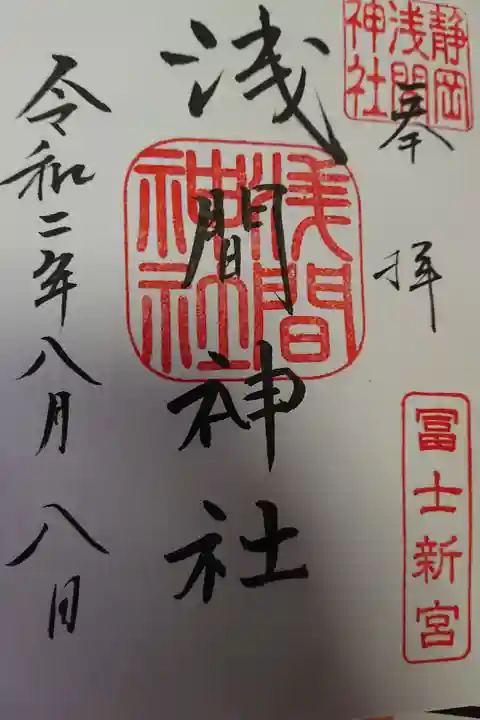 静岡
浅間
神社
奉拝
冨士新宮
浅間神社
浅間
神社
令和二年八月八日